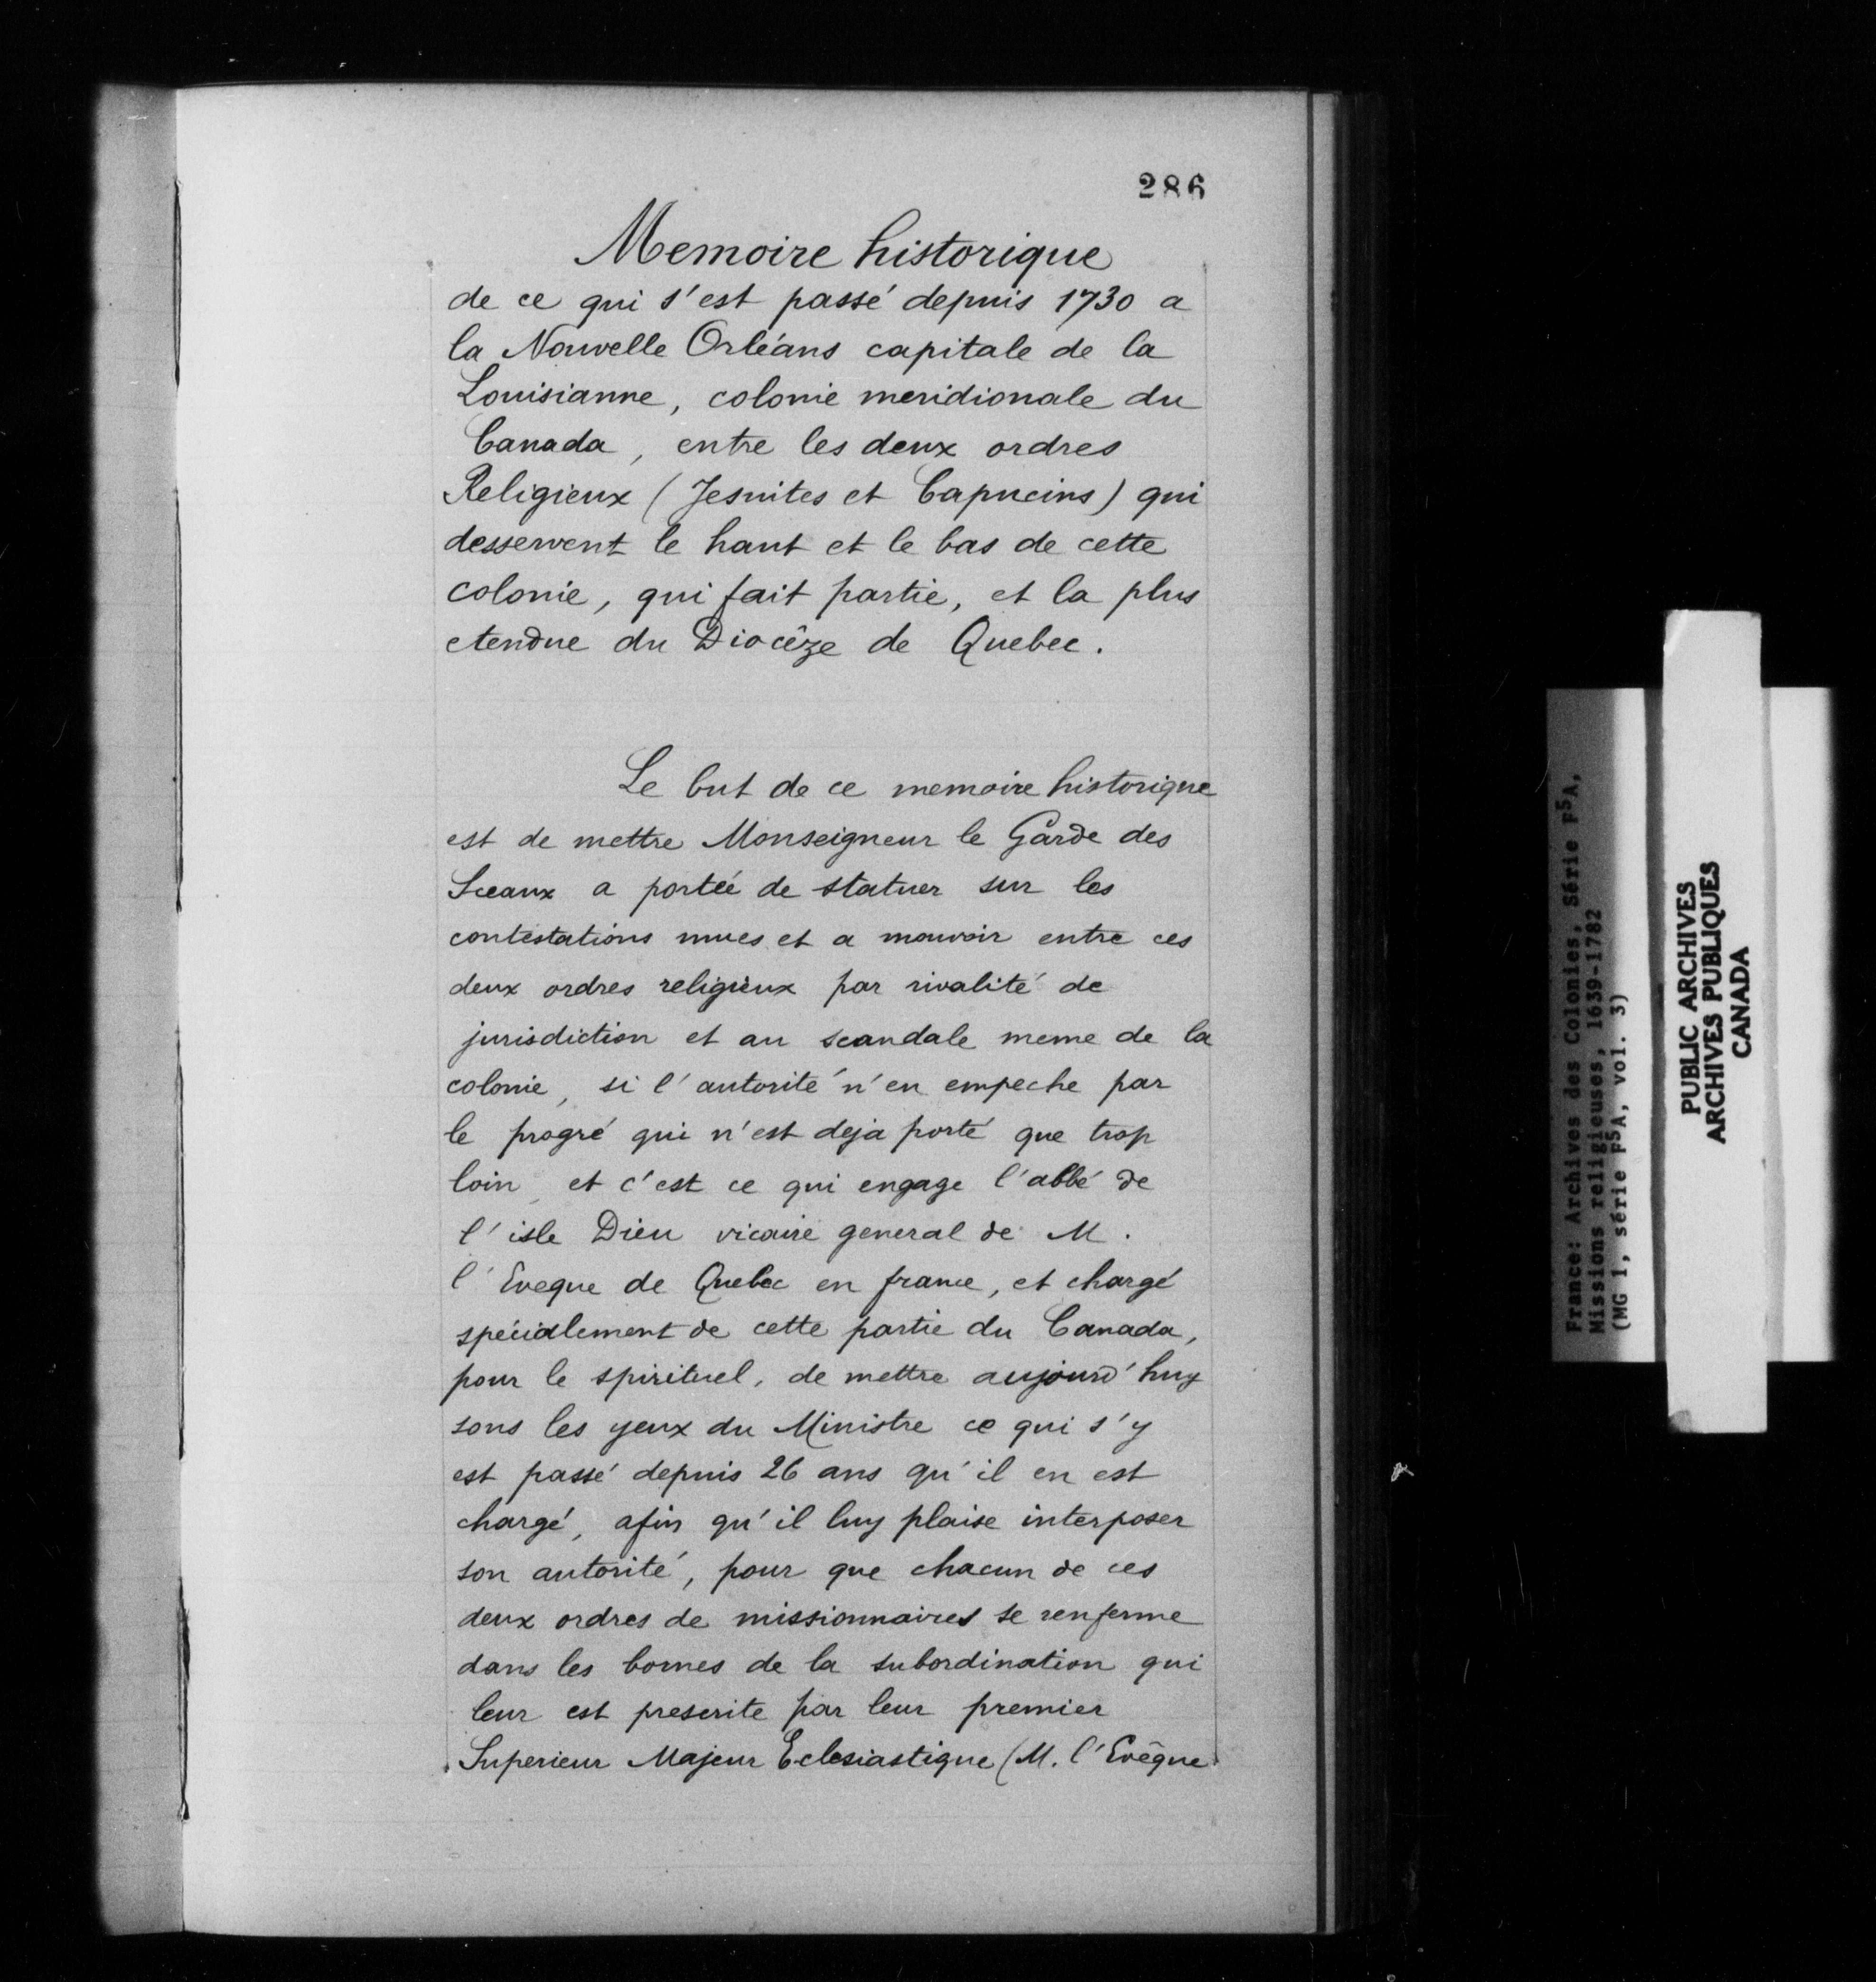 286
Memoire historique
de ce qui s'est passé depuis 1730 a
la Nouvelle Orléans capitale de la
Louisianne, colonie meridionale du
Canada, entre les deux ordres
Religieux (Jesuites et Capucins) qui
desservent le haut et le bas de cette
colonie, qui fait partie, et la plus
etendue du Diocêze de Quebec.
Le but de ce memoire historique
est de mettre Monseigneur le Garde des
Sceaux a porteé de statuer sur les
contestations mues et a mouvoir entre ces
deux ordres religieux par rivalité de
jurisdiction et au scandale meme de la
colonie, si l'autorité n'en empeche par
le progré qui n'est deja porté que trop
loin, et c'est ce qui engage l'abbé de
l'isle Dieu vicaire general de M.
l'Eveque de Quebec en france, et chargé
spécialement de cette partie du Canada,
pour le spirituel, de mettre aujourd'huy
sous les yeux du Ministre ce qui s'y
est passé depuis 26 ans qu'il en est
chargé, afin qu'il luy plaise interposer
son autorité, pour que chacun de ces
deux ordres de missionnaires se renferme
dans les bornes de la subordination qui
leur est prescrite par leur premier
Superieur Majeur Eclesiastique (M. l'Evêque
France: Archives des Colonies, Série F5A,
Missions religieuses, 1639-1782
(MG 1, série F5A, vol. 3)
PUBLIC ARCHIVES
ARCHIVES PUBLIQUES
CANADA